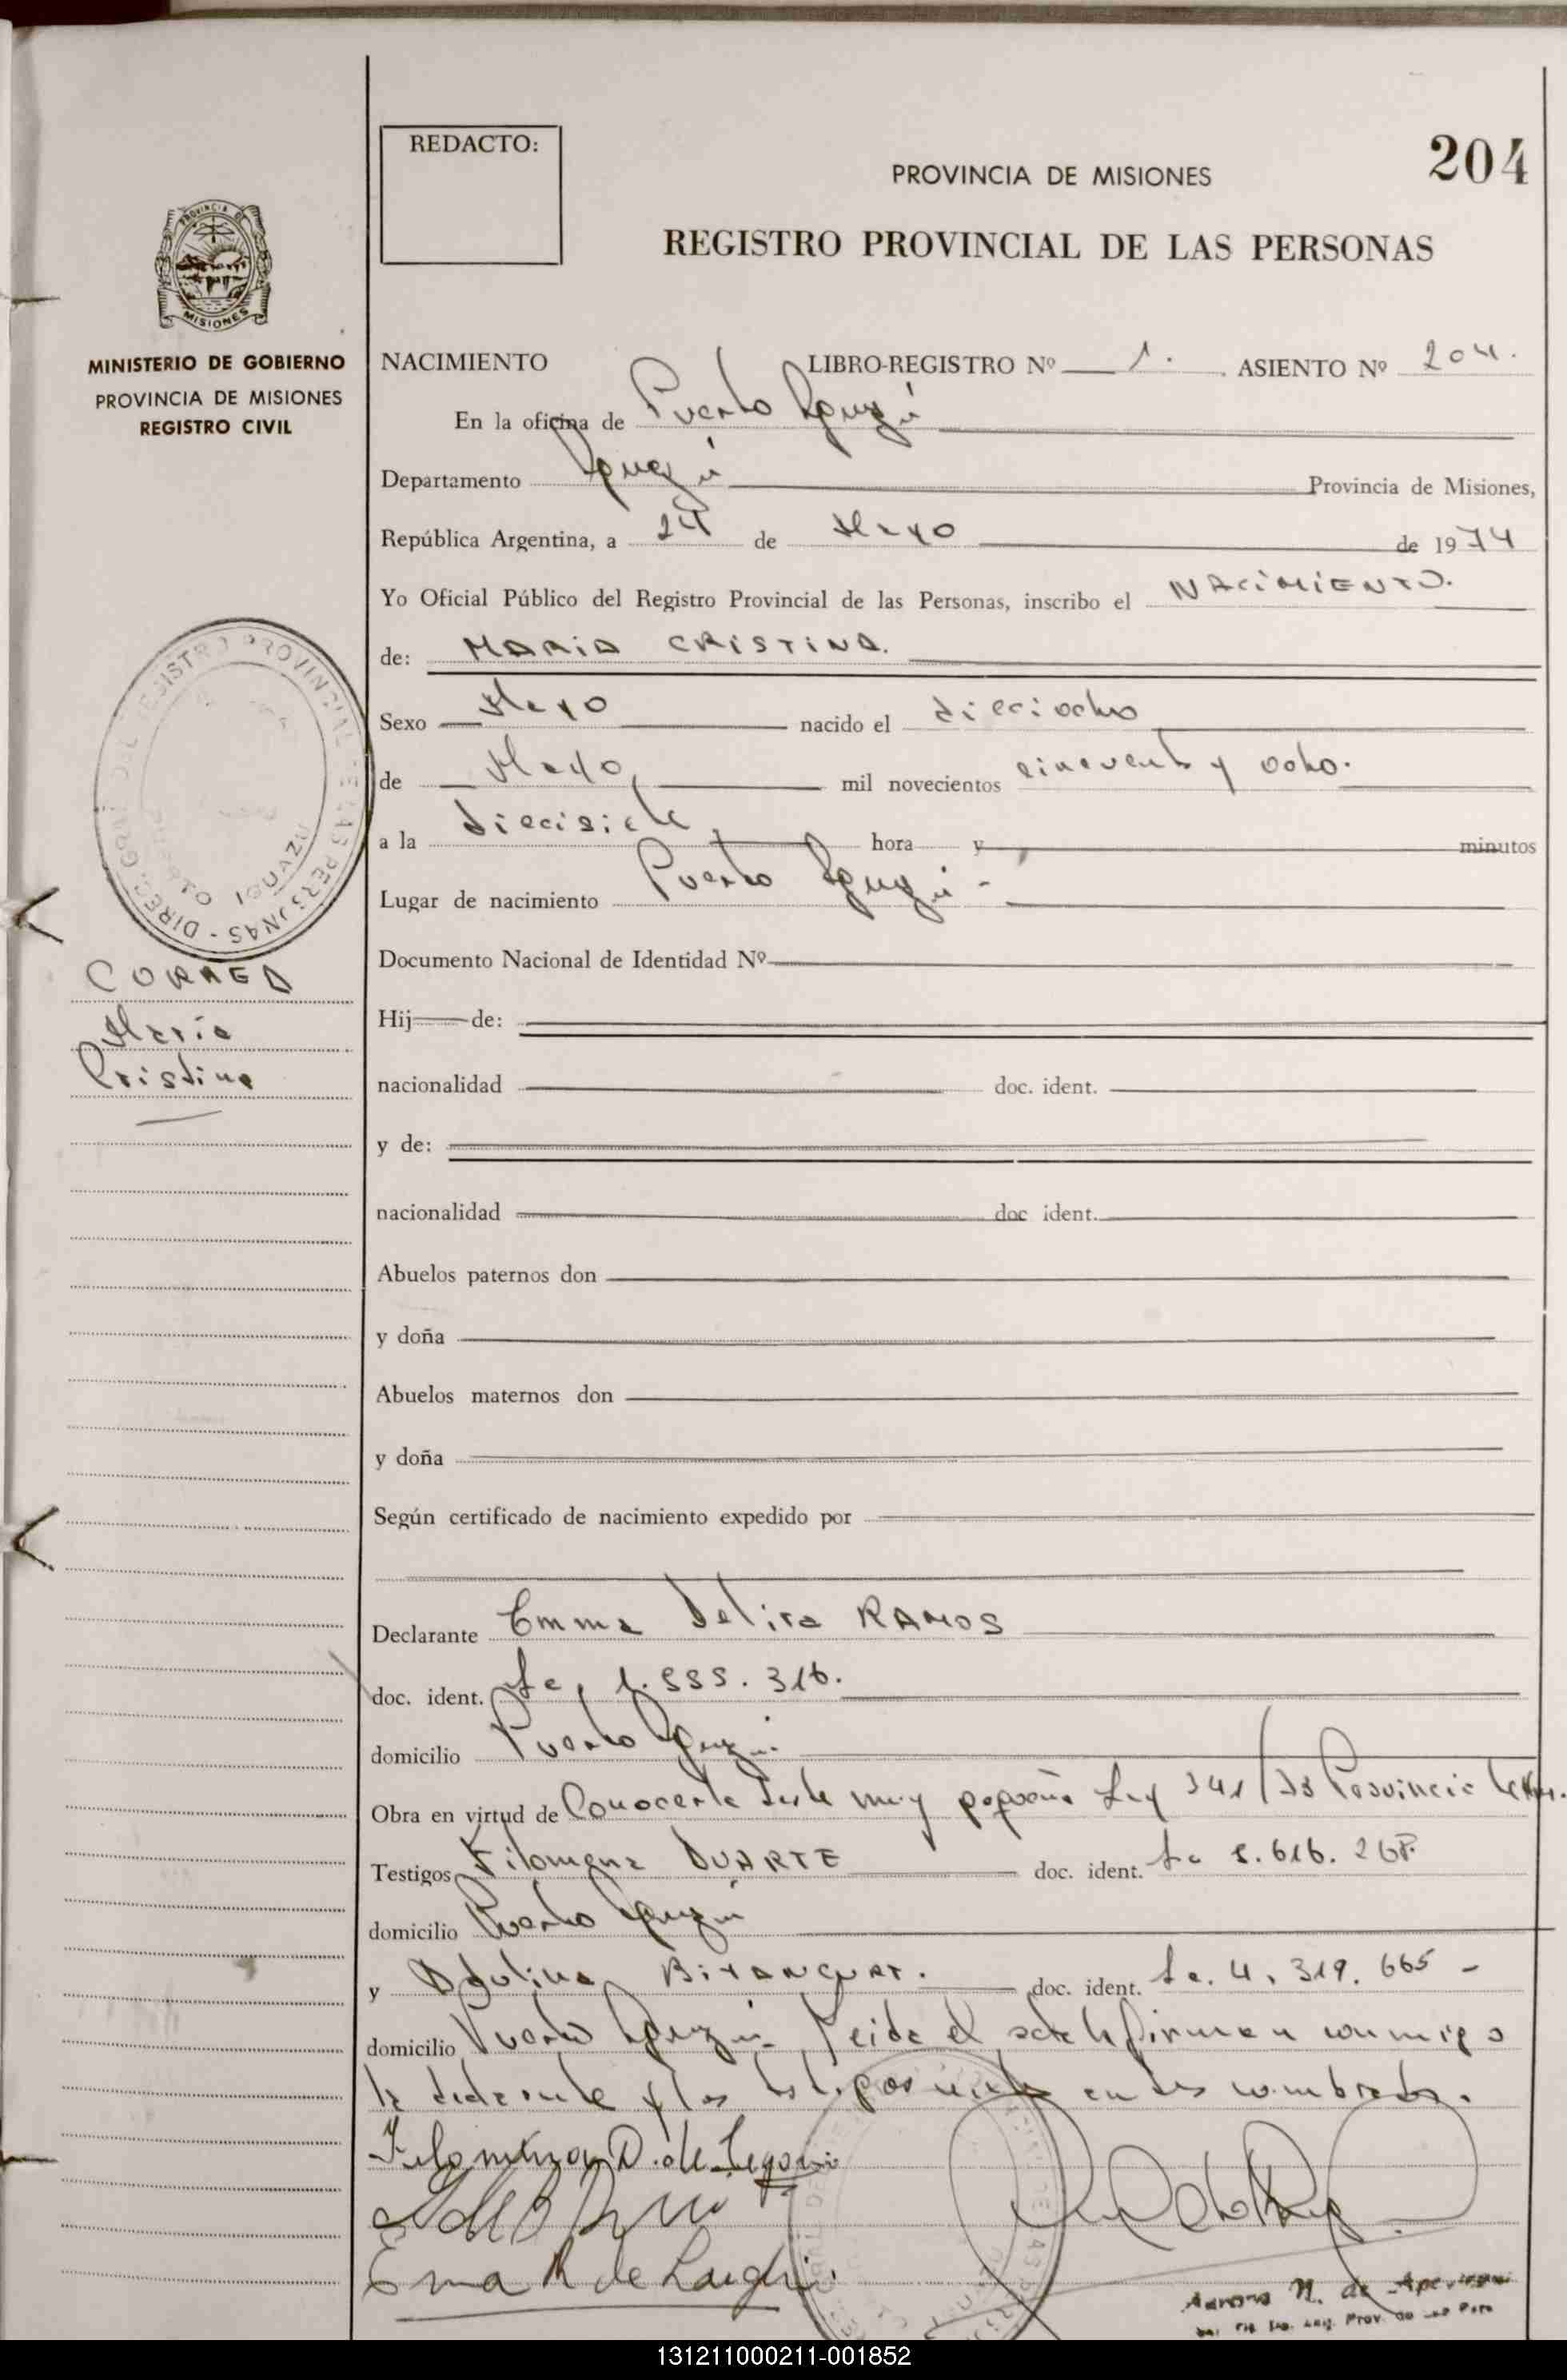 REDACTO:
204
PROVINCIA DE MISIONES
REGISTRO PROVINCIAL DE LAS PERSONAS
MISIONES
MINISTERIO DE GOBIERNO
PROVINCIA DE MISIONES
REGISTRO CIVIL
NACIMIENTO LIBRO-REGISTRO Nº 1. ASIENTO Nº 204.
En la oficina de Puerto Iguazú
Departamento Iguazú Provincia de Misiones,
República Argentina, a 24 de Mayo de 1974
Yo Oficial Público del Registro Provincial de las Personas, inscribo el NACIMIENTO.
de: MARIA CRISTINA.
Sexo nacido el dieciocho
de Mayo mil novecientos cincuenta y ocho.
a la diecisiete hora y minutos
Lugar de nacimiento Puerto Iguazú -
Documento Nacional de Identidad Nº
CORREA
María
Cristina
Hij de:
nacionalidad doc. ident.
y de:
nacionalidad doc ident.
Abuelos paternos don
y doña
Abuelos maternos don
y doña
Según certificado de nacimiento expedido por
Declarante Emma RAMOS
doc. ident. Lc, 316.
domicilio Puerto Iguazú
Obra en virtud de Conocerla desde muy pequeña Ley Provincia
Testigos Filomena DUARTE doc. ident. Lc 616.
domicilio Puerto Iguazú
y BITANCURT. doc. ident. Lc. 4. 319. 665 -
domicilio Puerto Iguazú Leida el acta la firman conmigo
la declarante y los testigos
Filomena D. de
Ema R de
Aurora N. de
131211000211-001852